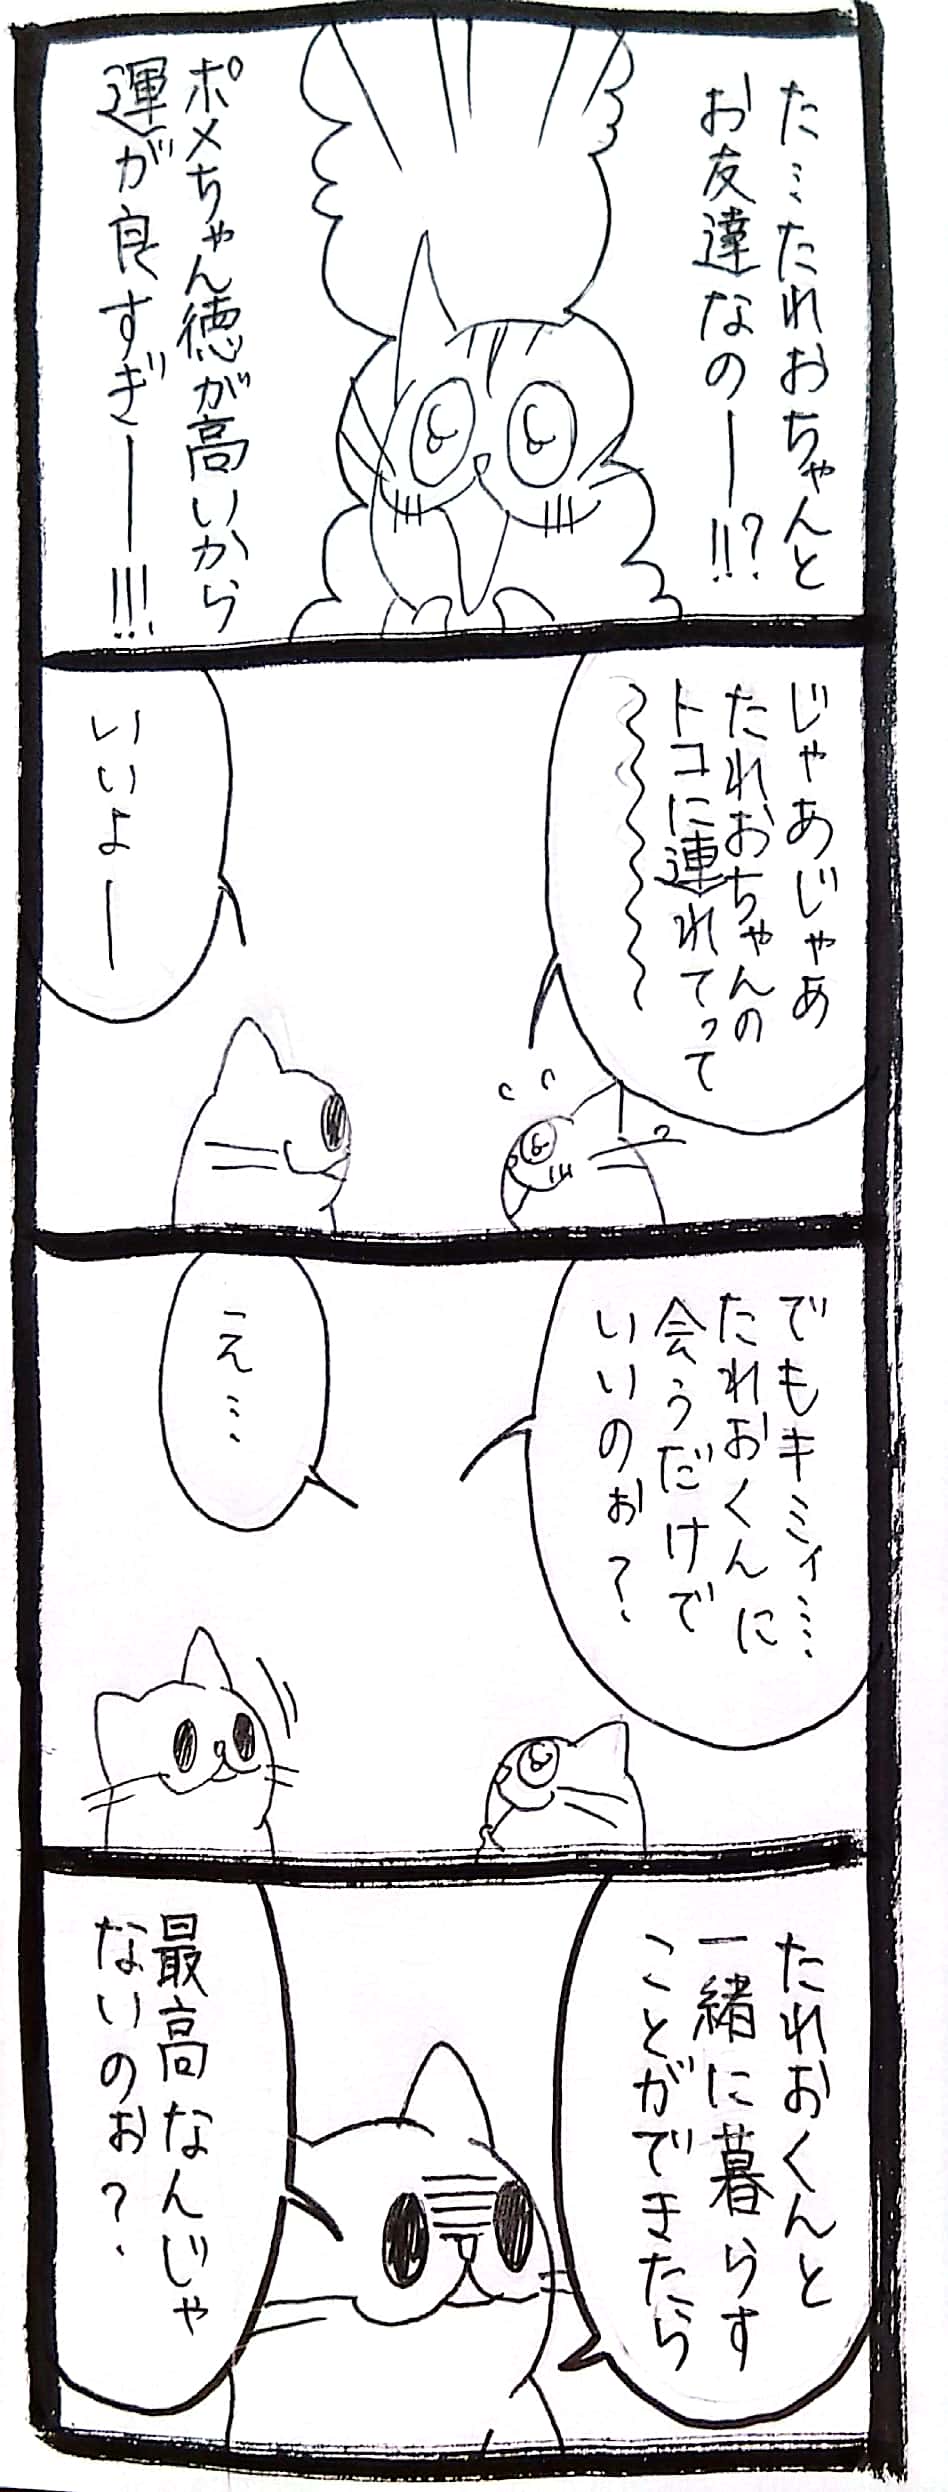 た…たれおちゃんと
お友達なのー!!?
ポメちゃん徳が高いから
運が良すぎー!!!
じゃあじゃあ
たれおちゃんの
トコに連れてって
〜〜〜〜〜
いいよー
でもキミィ……
たれおくんに
会うだけで
いいのぉ?
え…
たれおくんと
一緒に暮らす
ことができたら
最高なんじゃ
ないのぉ?